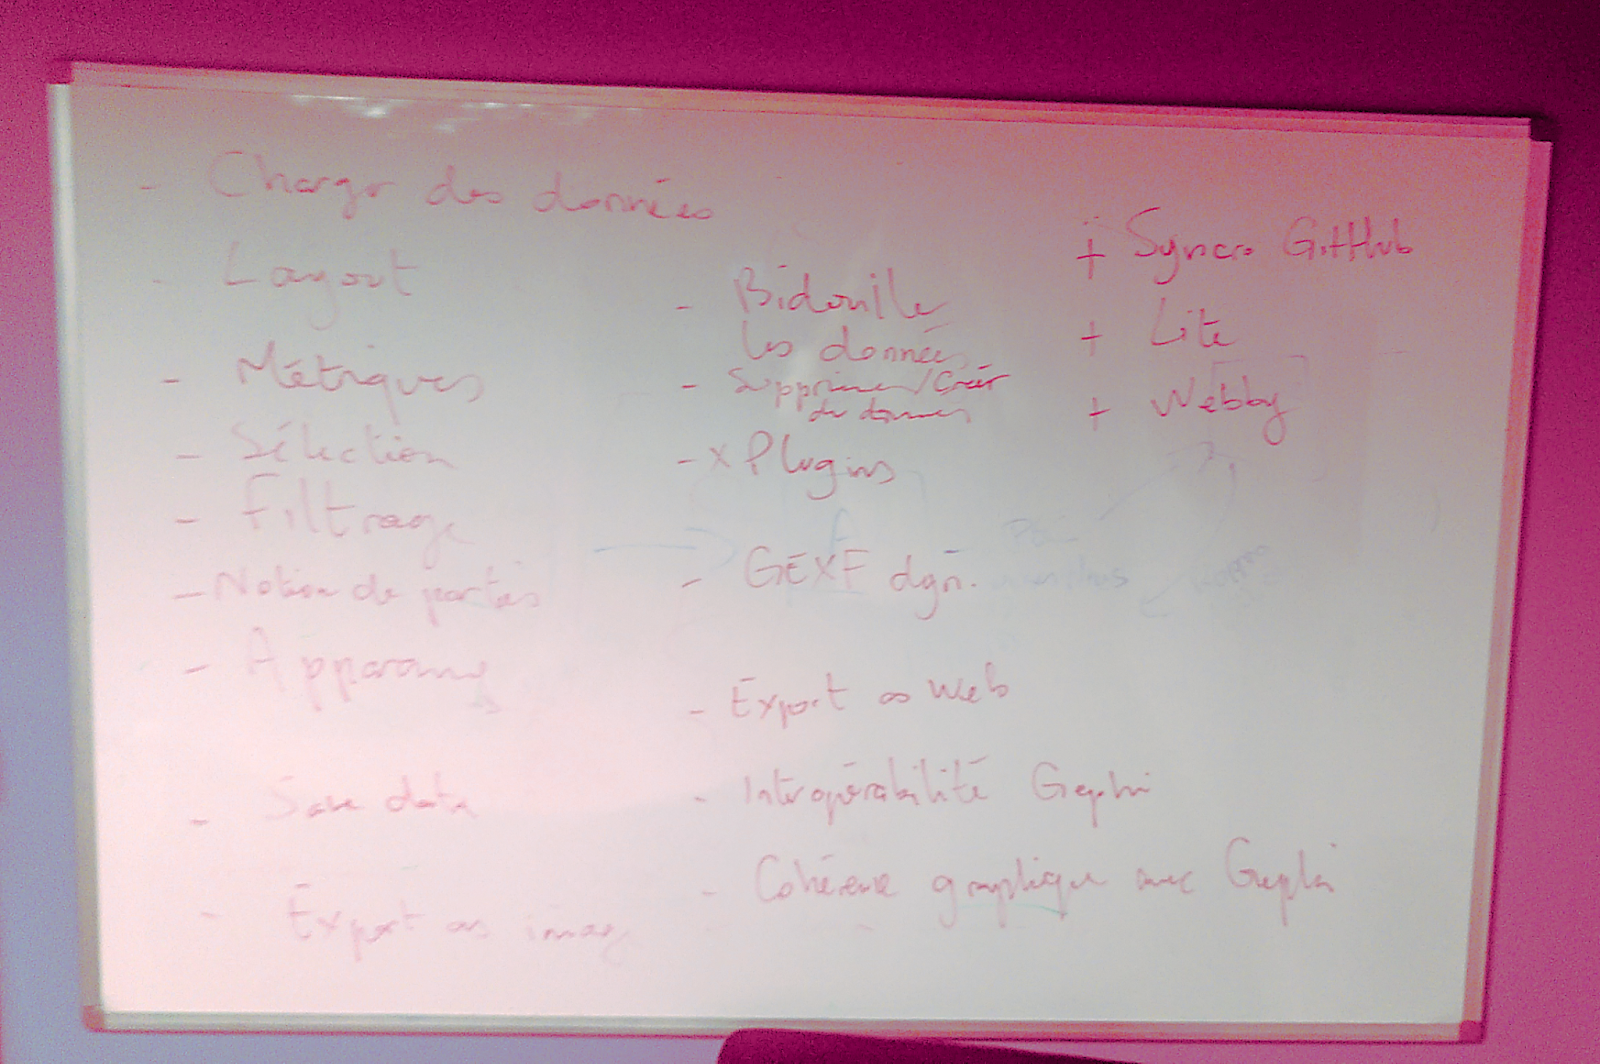 - Charger des données
- Layout
- Métriques
- Sélection
- Filtrage
- Notion de parties
- Apparence
- Save data
- Export as image
- Bidouiller
les données
- Supprimer/Créer
des données
- x Plugins
- GEXF dyn.
- Export as Web
- Interopérabilité Gephi
- Cohérence graphique avec Gephi
+ Syncro GitHub
+ Lite
+ Webby